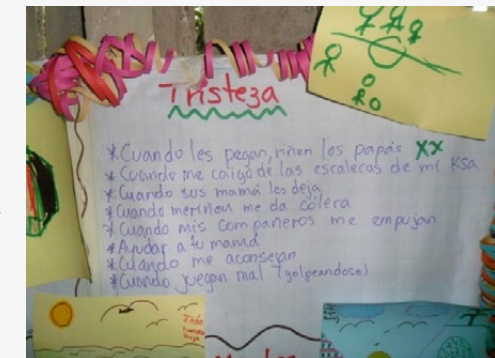 Tristeza
*Cuando les pegan, riñen los papás xx
*Cuando me caigo de las escaleras de mi Ksa
*Cuando sus mamá les deja
*Cuando meriñen me da cólera
*Cuando mis compañeros me empujan
*Ayudar a tu mamá
*Cuando me aconsejan
*Cuando juegan mal (golpeandose)